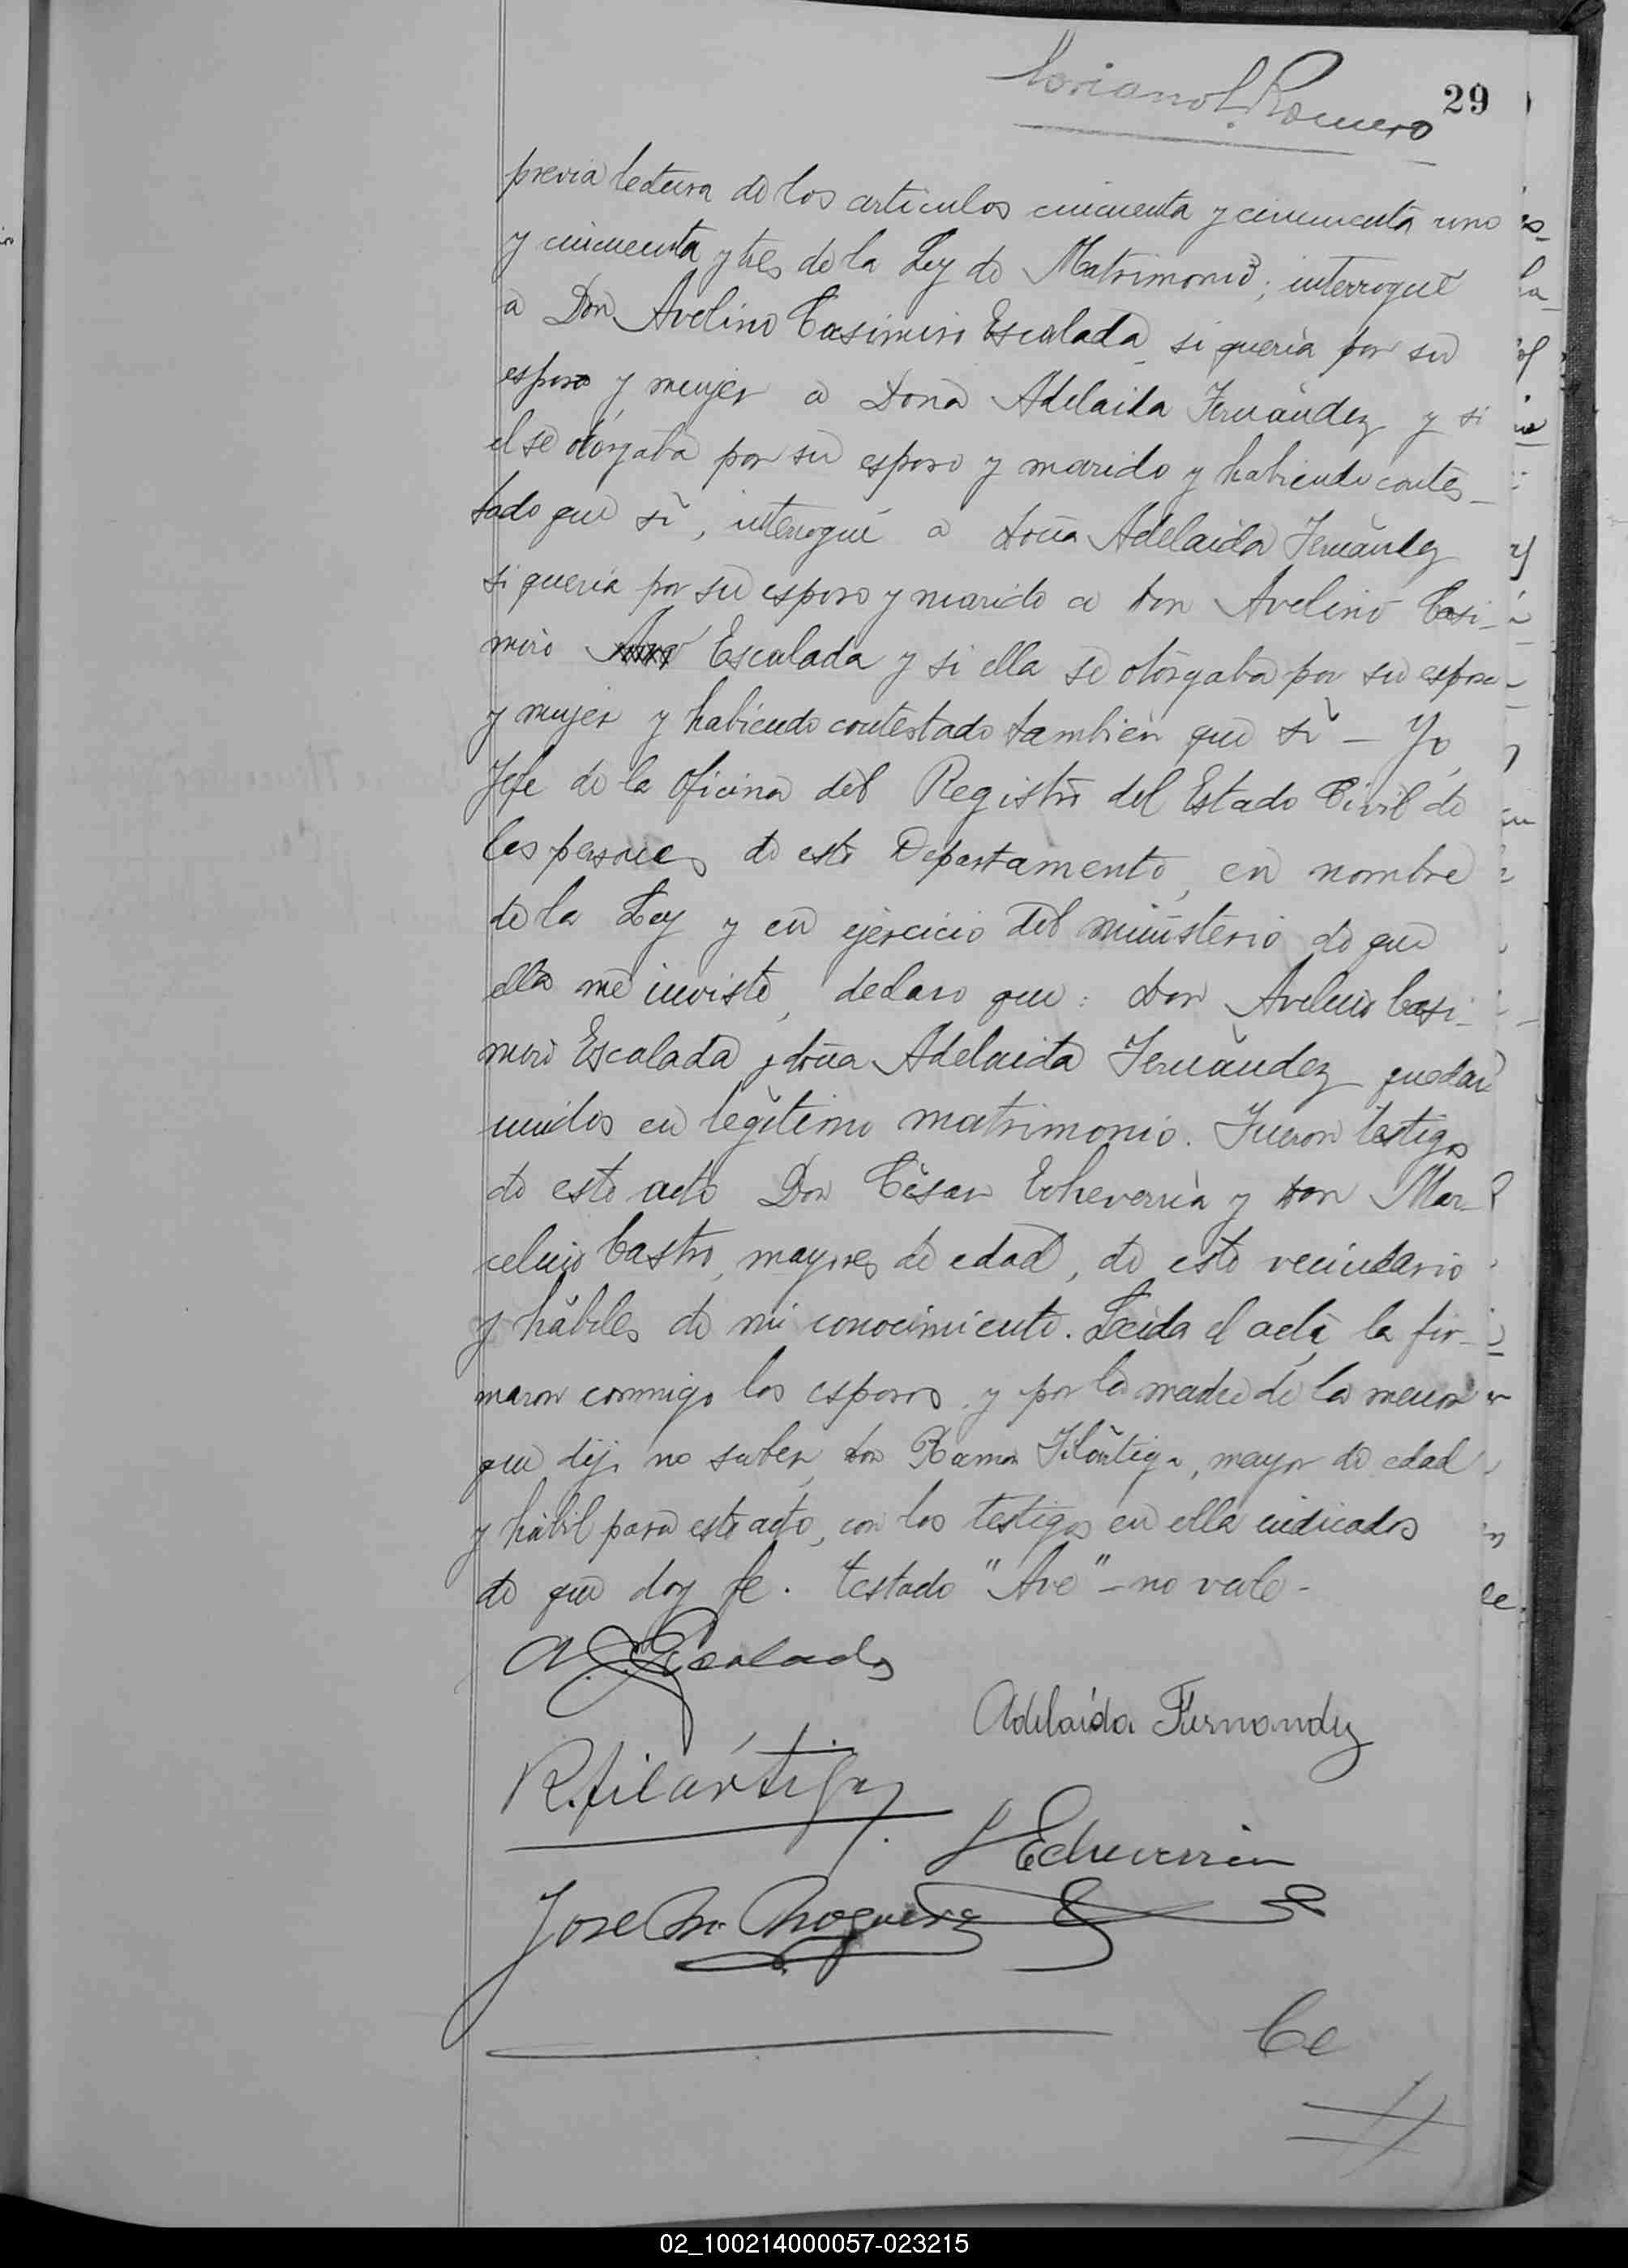 29
Romero
previa lectura de los articulos cincuenta y cincuenta uno
y cincuenta y tres de la Ley de Matrimonio; interrogué
a Don Avelino Casimiro Escalada si queria por su
esposa y mujer a Dona Adelaida Fernández y si
el se otorgaba por su esposo y marido y habiendo contes_
tado que si, interrogué a doña Adelaida Fernández
si queria por su esposo y marido a don Avelino Casi_
miro Escalada y si ella se otorgaba por su esposa
y mujer y habiendo contestado también que si – Yo,
Jefe de la Oficina del Registro del Estado Civil de
las personas de este Departamento, en nombre
de la Ley y en ejercicio del ministerio de que
ella me inviste, declaro que: don Avelino Casi_
miro Escalada y doña Adelaida Fernández quedan
unidos en legítimo matrimonio. Fueron testigos
de este acto Don César Echeverría y don Mar_
celino Castro, mayores de edad, de este vecindario
y hábiles de mi conocimiento. Leida el acta, la fir_
maron conmigo los esposos y por la madre de la menor
que dijo no saber, don Ramon Filártiga, mayor de edad
y hábil para este acto, con los testigos en ella indicados
de que doy fe. Testado "Ave" – no vale –
A. Escalada
Adelaida Fernandez
R. Filártiga
Echeverria
Jose Noguera
Ce
02_100214000057-023215